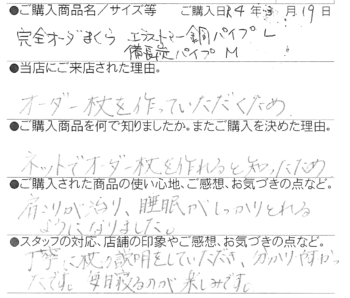 ●ご購入商品名／サイズ等　ご購入日R4年3月19日
完全オーダまくら エラストマー銅パイプ L
備長炭パイプ M
●当店にご来店された理由。
オーダー枕を作っていただくため
●ご購入商品を何で知りましたか。またご購入を決めた理由。
ネットでオーダー枕を作れると知ったため
●ご購入された商品の使い心地、ご感想、お気づきの点など。
肩コリが治り、睡眠がしっかりとれる
ようになりました。
●スタッフの対応、店舗の印象やご感想、お気づきの点など。
丁寧に枕の説明をしていただき、分かりやすかっ
たです。毎日寝るのが楽しみです。